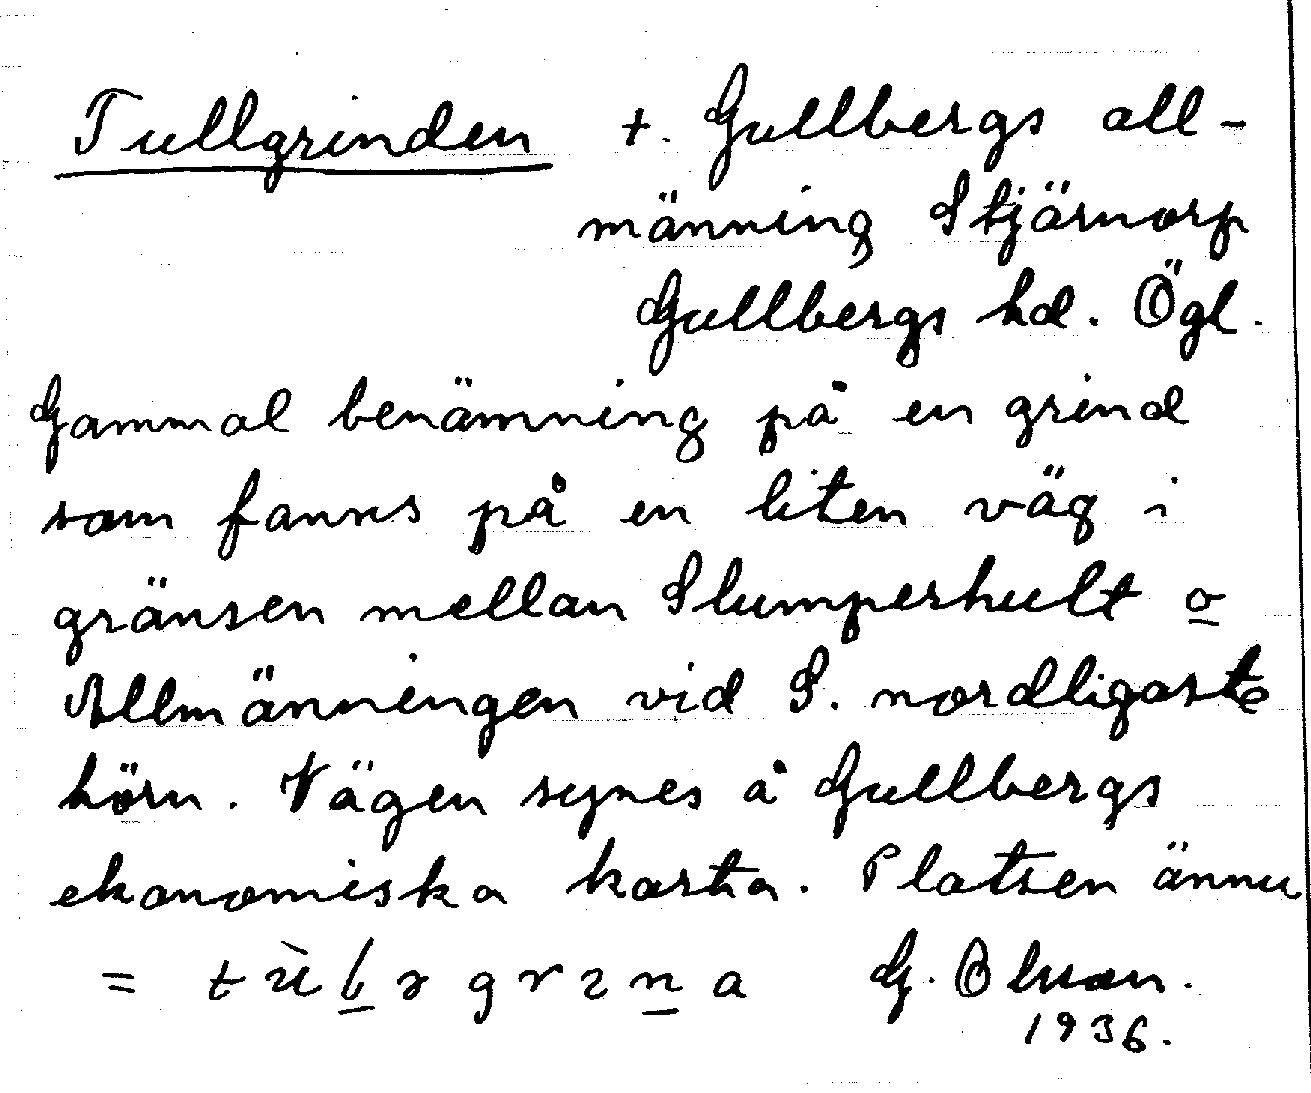 Tullgrinden +. Gullbergs all-
männing Stjärnorp
Gullbergs hd. Ögl.
Gammal benämning på en grind
som fanns på en liten väg i
gränsen mellan Slumperhult o
Allmänningen vid S. nordligaste
hörn. Vägen synes å Gullbergs
ekonomiska karta. Platsen ännu
= G. Olsson.
1936.